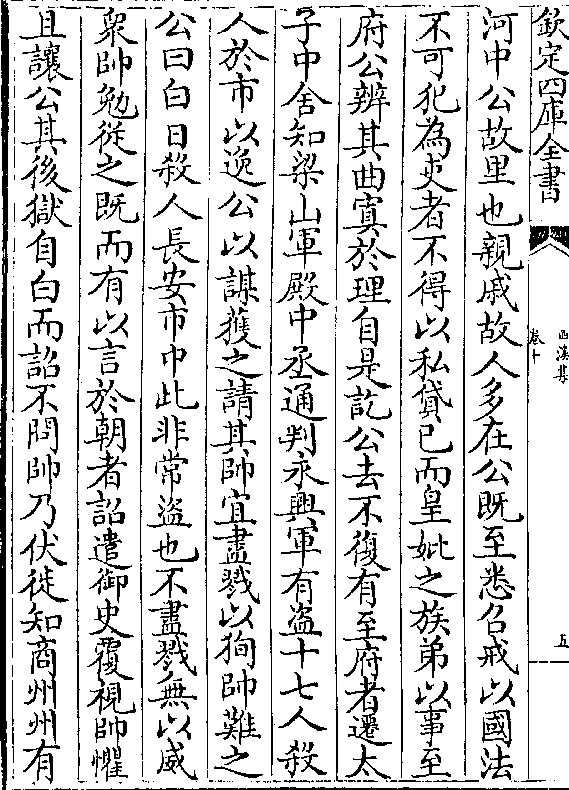 欽定四庫全書
西溪集
卷十
五
河中公故里也親戚故人多在公既至悉召戒以國法
不可犯為吏者不得以私貸已而皇妣之族弟以事至
府公辨其曲寘於理自是訖公去不復有至府者遷太
子中舍知梁山軍殿中丞通判永興軍有盜十七人殺
人於市以逸公以謀獲之請其帥宜盡戮以狥帥難之
公曰白日殺人長安市中此非常盜也不盡戮無以威
衆帥勉從之既而有以言於朝者詔遣御史覆視帥懼
且讓公其後獄自白而詔不問帥乃伏徙知商州州有